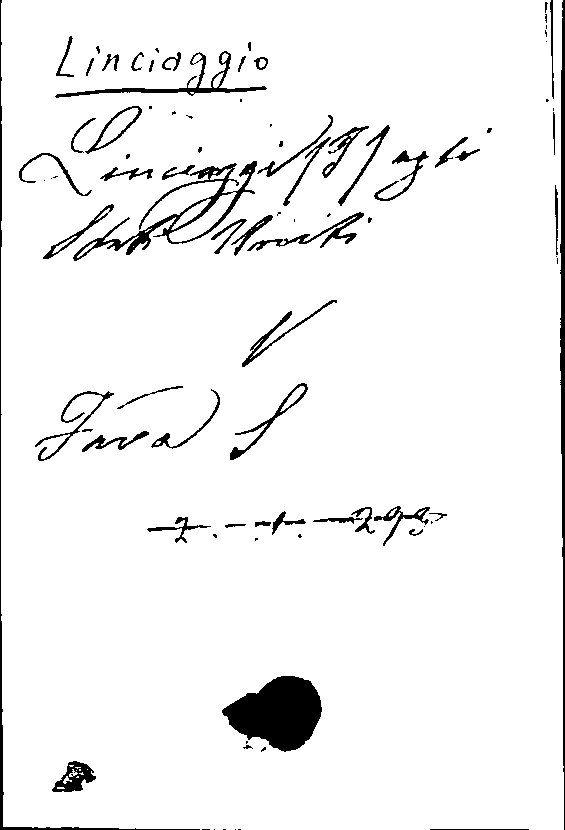 Linciaggio
Linciaggi (I) agli
Stati Uniti
V
Fava S